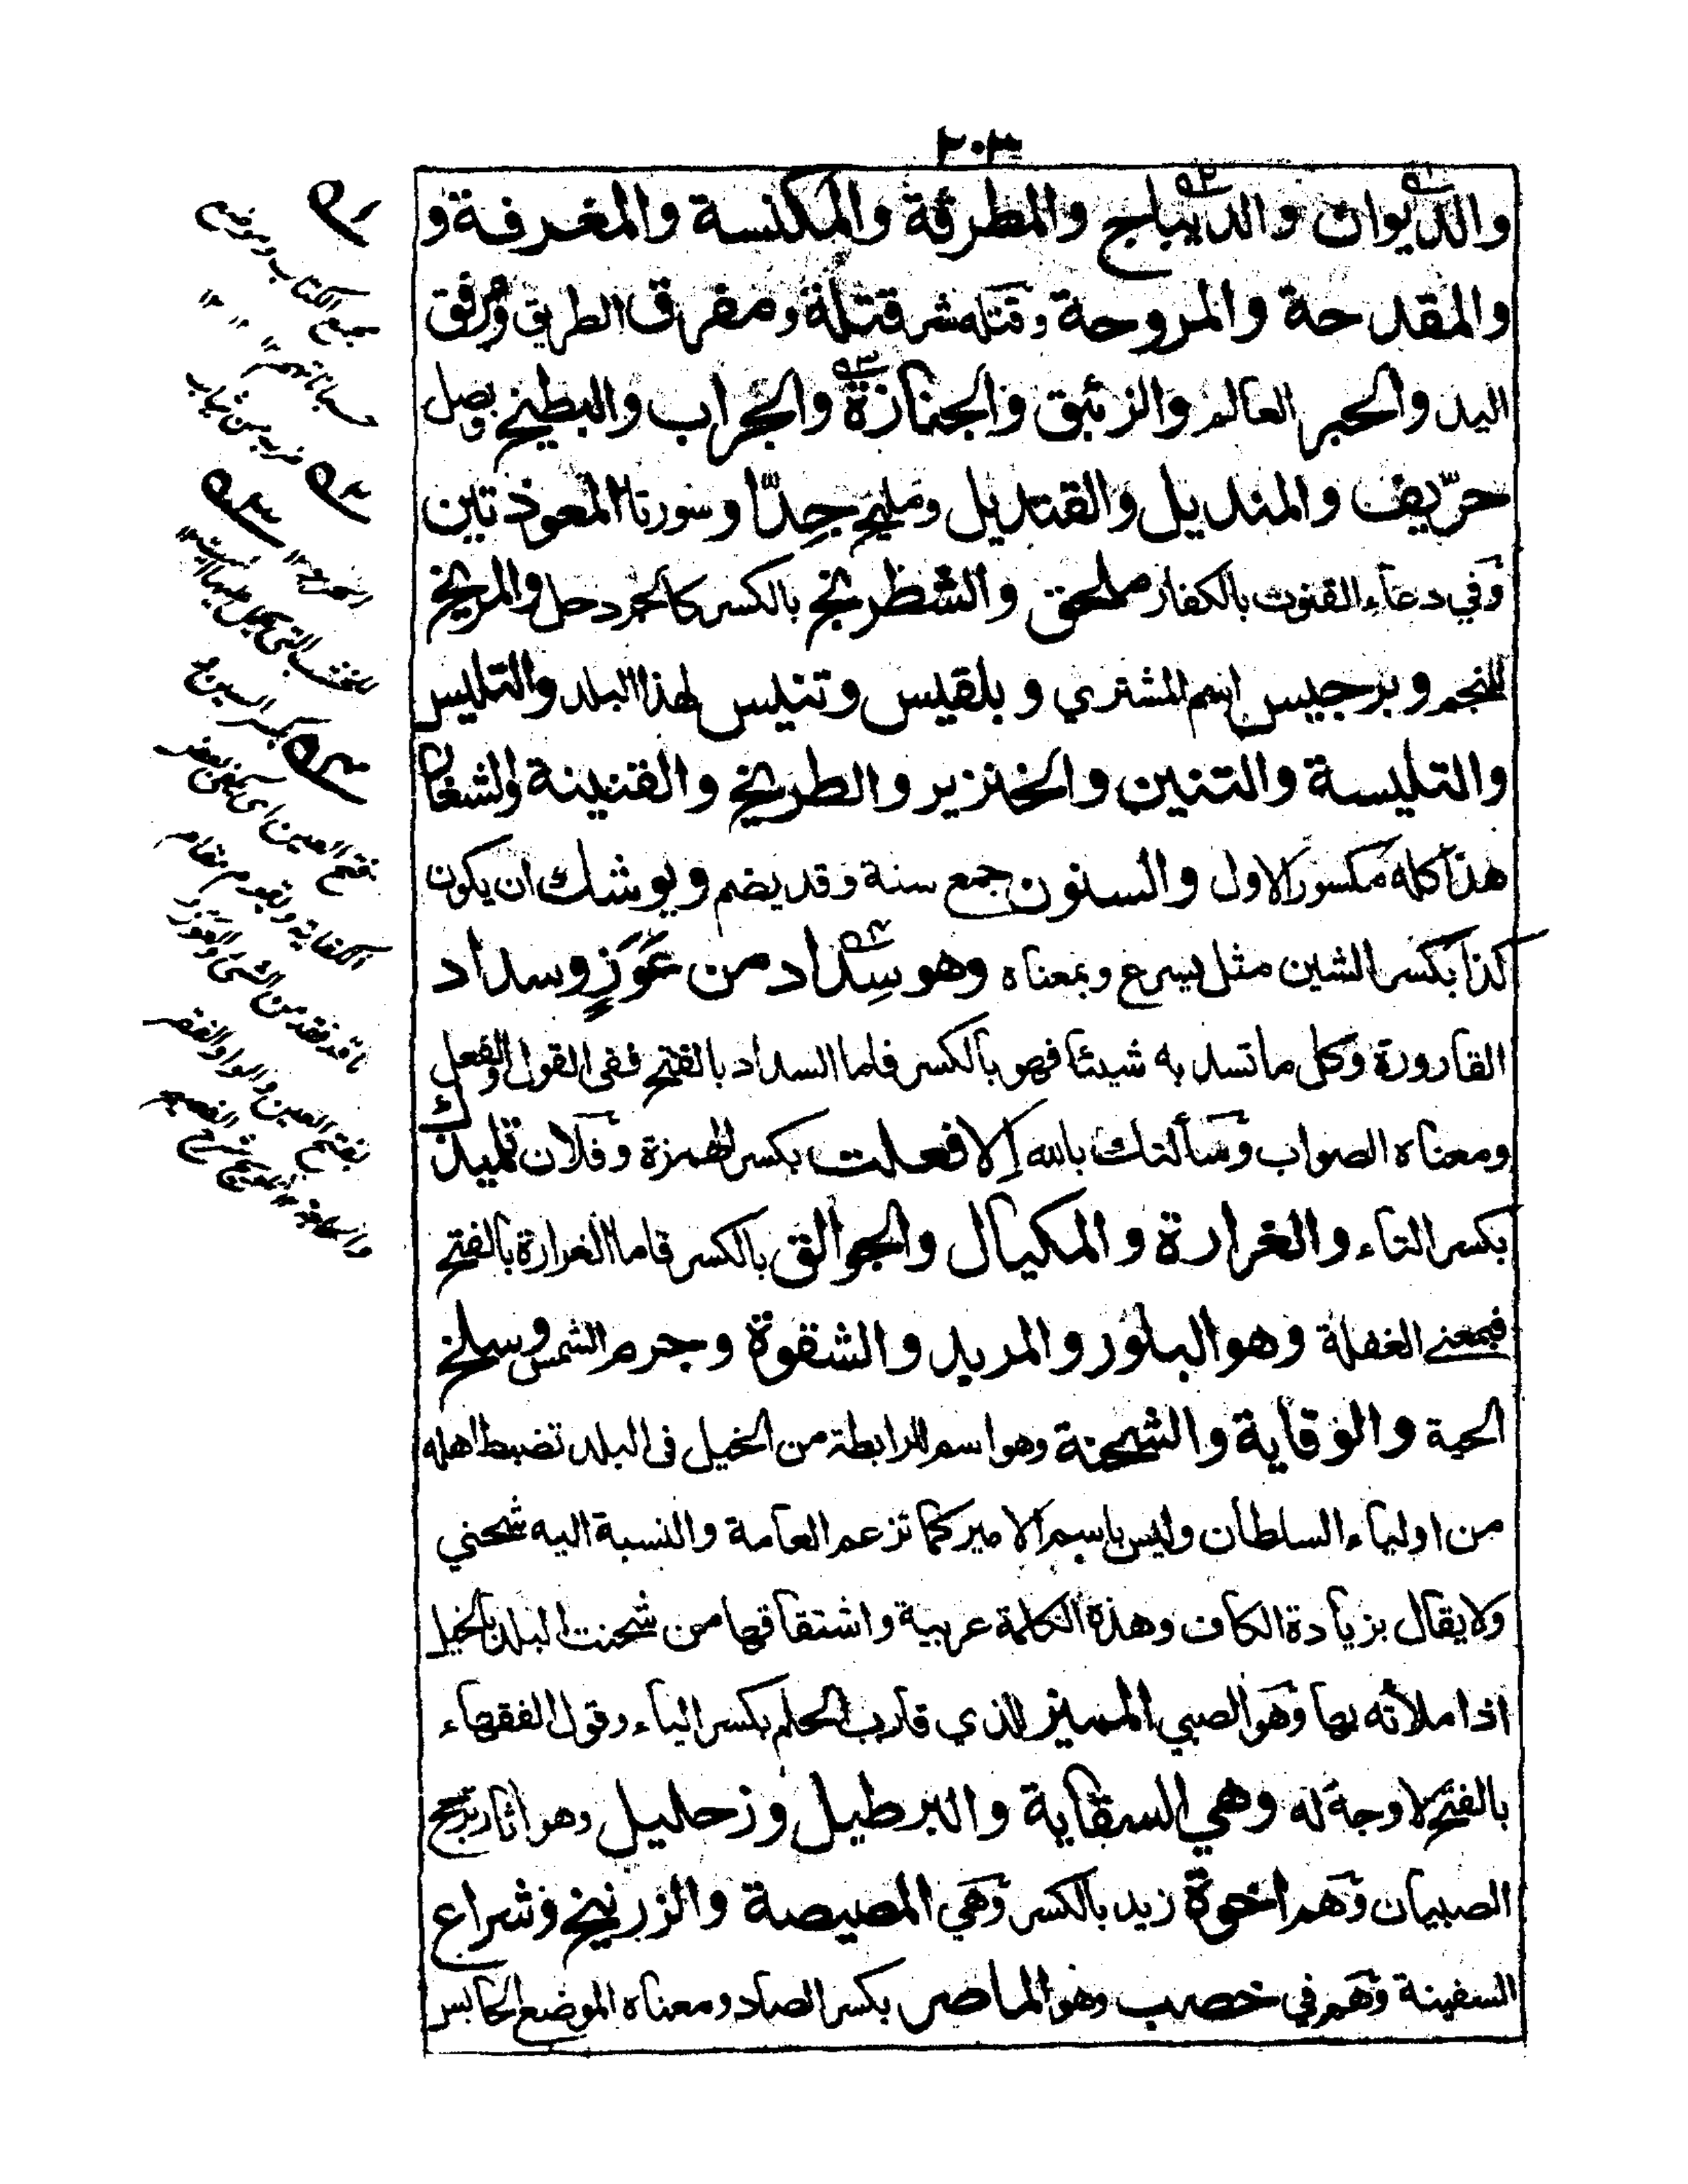 ٢٠٣
والديوان والديباج والمطرقة والمكنسة والمغرفة و
والمقدحة والمروحة وقتله شر قتلة ومفرق الطريق ومرفق
اليد والحبر العالم والزئبق والجنازة والجراب والبطيخ وبصل
حرّيف والمنديل والقنديل ومليح جِدّا وسورتا المعوذتين
وفي دعاء القنوت بالكفار ملحق والشطرنج بالكسر كالجردحل والمريخ
للنجم وبرجيس اسم المشتري و بلقيس وتنيس لهذا البلد والتليس
والتليسة والتنين والخنزير والطريخ والقنينة والشغار
هذا كله مكسور الاول والسنون جمع سنة وقد يضم ويوشك ان يكون
كذا بكسر الشين مثل يسرع وبمعناه وهو سِداد من عَوَزٍ وسداد
القارورة وكل ما تسد به شيئا فهو بالكسر فاما السداد بالفتح ففى القول والفعل
ومعناه الصواب وسألتك بالله إلا فعلت بكسر الهمزة وفلان تلميذك
بكسر التاء والغرارة والمكيال والجوالق بالكسر فاما الغرارة بالفتح
فبمعنى الغفلة وهو البلور والمربد والشقوة وجرم الشمس وسلخ
الحية والوقاية والشحنة وهو اسم للرابطة من الخيل فى البلد تضبط اهله
من اولياء السلطان وليس باسم الامير كما تزعم العامة والنسبة اليه شحني
ولا يقال بزيادة الكاف وهذه الكلمة عربية واشتقاقها من شحنت البلد بالخيل
اذا ملأته بها وهو الصبي المميز للذي قارب الحلم بكسر الياء وقول الفقهاء
بالفتح لا وجه له وهي السقاية والبرطيل وزحليل وهو اثار تزلج
الصبيان وهم اخوة زيد بالكسر وهي المصيصة والزرنيخ وشراع
السفينة وهم في خصب وهو الماصر بكسر الصاد ومعناه الموضع الحابس
مجمع الكتاب وموضع
حساباتهم
ضرب من ثياب
بكسر السين
بفتح العين
بفتح العين والواو الفقر